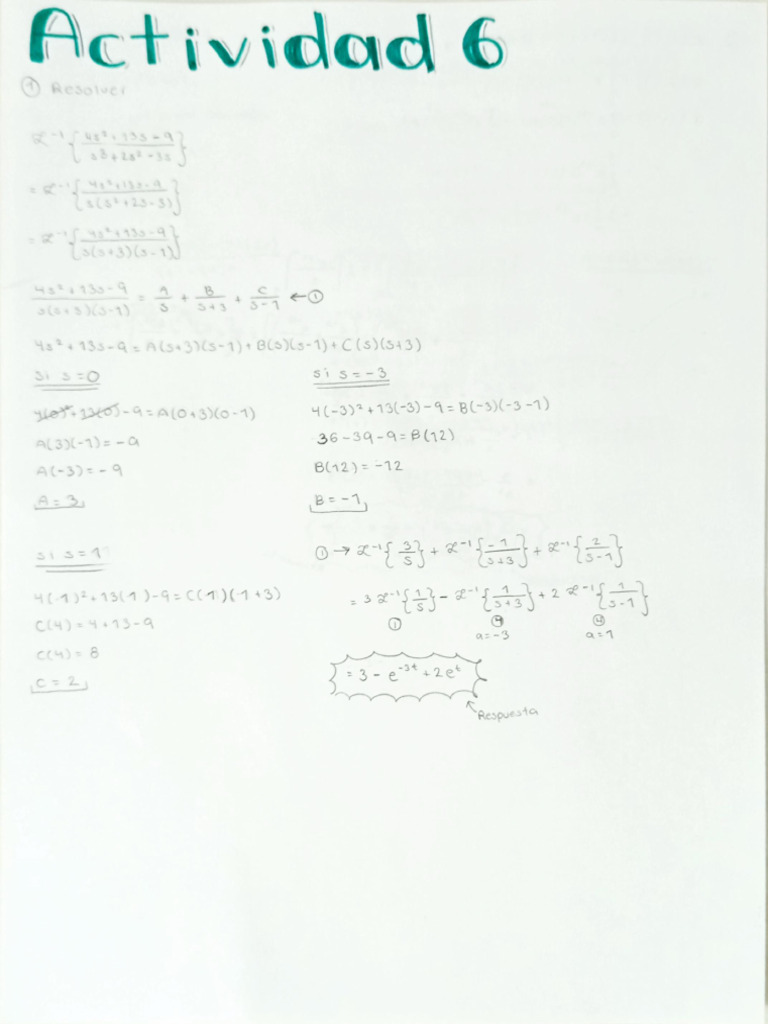 Actividad 6
① Resolver
ℒ⁻¹{(4s²+13s-9)/(s³+2s²-3s)}
= ℒ⁻¹{(4s²+13s-9)/(s(s²+2s-3))}
= ℒ⁻¹{(4s²+13s-9)/(s(s+3)(s-1))}
(4s²+13s-9)/(s(s+3)(s-1)) = A/s + B/(s+3) + C/(s-1) ←①
4s²+13s-9 = A(s+3)(s-1)+B(s)(s-1)+C(s)(s+3)
si s=0
4(0)²+13(0)-9=A(0+3)(0-1)
A(3)(-1)=-9
A(-3)=-9
A=3
si s=-3
4(-3)²+13(-3)-9=B(-3)(-3-1)
36-39-9=B(12)
B(12)=-12
B=-1
si s=1
4(1)²+13(1)-9=C(1)(1+3)
C(4)=4+13-9
C(4)=8
C=2
①→ ℒ⁻¹{3/s} + ℒ⁻¹{-1/(s+3)} + ℒ⁻¹{2/(s-1)}
= 3 ℒ⁻¹{1/s} - ℒ⁻¹{1/(s+3)} + 2 ℒ⁻¹{1/(s-1)}
① ④ ④
a=-3 a=1
= 3 - e⁻³ᵗ + 2eᵗ
Respuesta